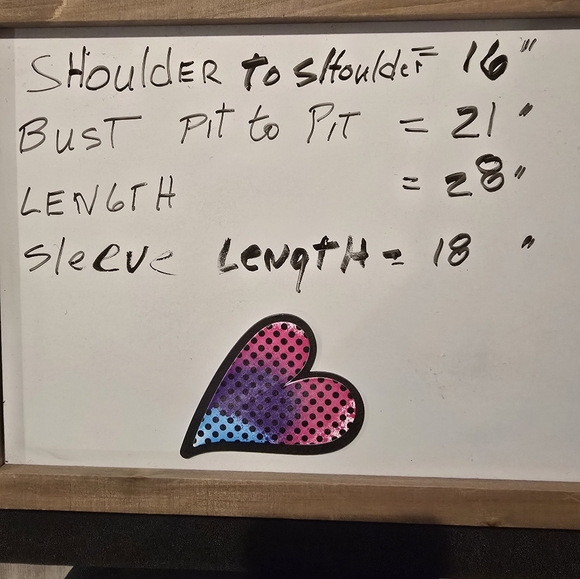 SHOULDER to SHoulder = 16"
BUST Pit to PiT = 21"
LENGTH = 28"
Sleeve LENgtH = 18"